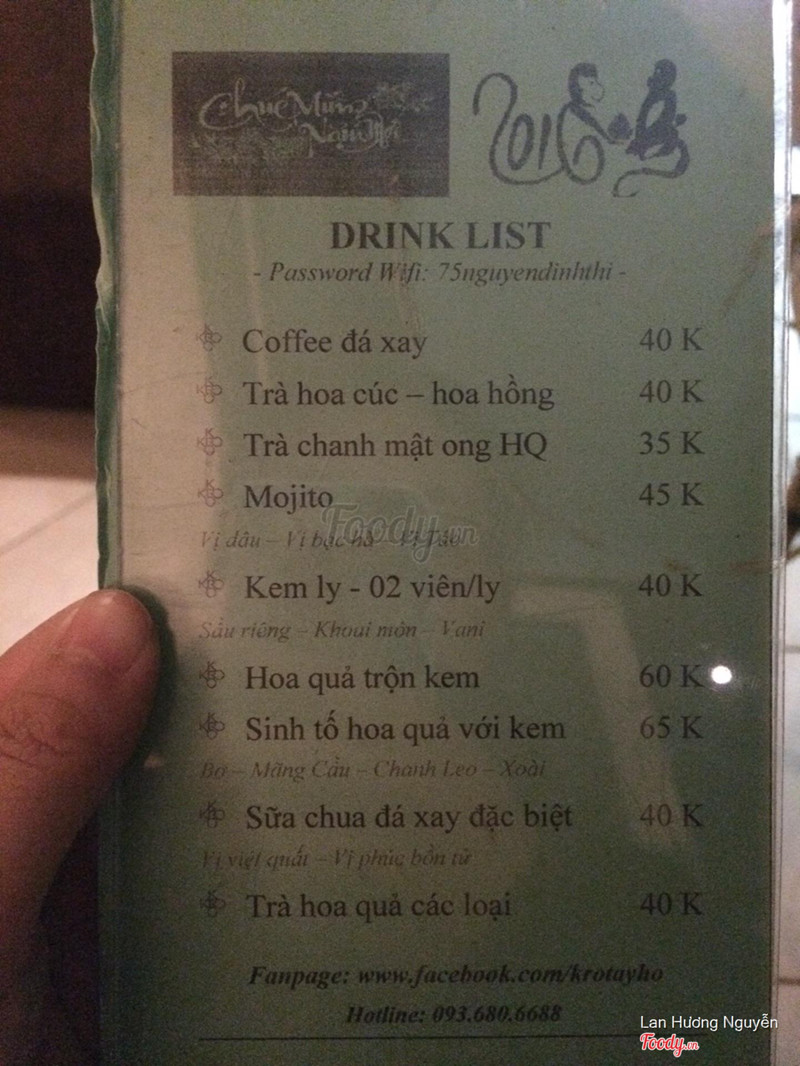 Chúc Mừng
Năm Mới
2016
DRINK LIST
- Password Wifi: 75nguyendinhthi -
Coffee đá xay 40 K
Trà hoa cúc – hoa hồng 40 K
Trà chanh mật ong HQ 35 K
Mojito 45 K
Vị dâu – Vị bạc hà – Vị Táo
Kem ly - 02 viên/ly 40 K
Sầu riêng – Khoai môn – Vani
Hoa quả trộn kem 60 K
Sinh tố hoa quả với kem 65 K
Bơ – Mãng Cầu – Chanh Leo – Xoài
Sữa chua đá xay đặc biệt 40 K
Vị việt quất – Vị phúc bồn tử
Trà hoa quả các loại 40 K
Fanpage: www.facebook.com/krotayho
Hotline: 093.680.6688
Foody.vn
Lan Hương Nguyễn
Foody.vn